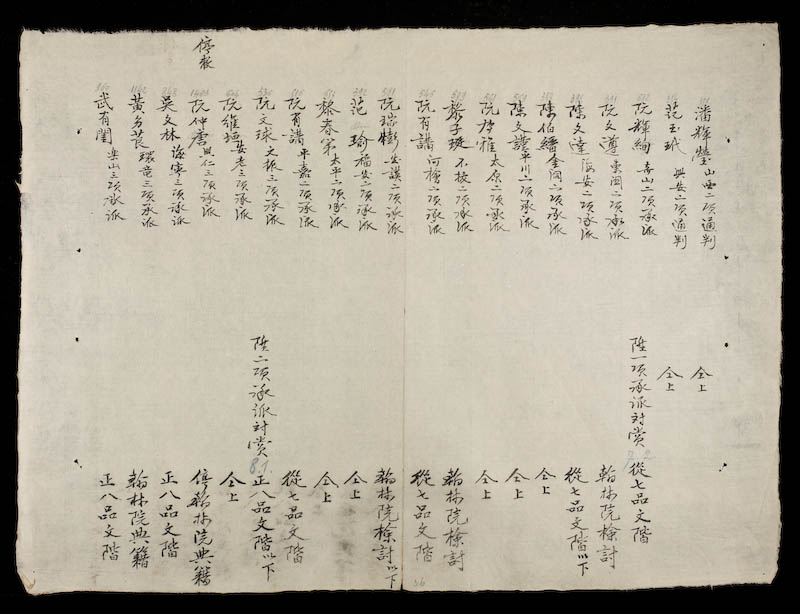 潘輝瑩山西二項通判 仝上
范玉玳興安二項通判 仝上
阮輝絢壽山二項承派 陞一項承派對賞 7.2 從七品文階
阮文遵東閣二項承派 翰林院檢討
陳文達海安二項承派 從七品文階以下
陳伯繙金洞二項承派 仝上
陳文護平川二項承派 仝上
阮雅太原二項承派 仝上
黎子珽不拔二項承派 翰林院檢討
阮有譜河檜二項承派 從七品文階
阮瑞澎安謨二項承派 翰林院檢討以下
范瑜福安二項承派 仝上
黎春第太平二項承派 仝上
阮有講平嘉二項承派 從七品文階
阮文球文振三項承派 陞二項承派對賞 8.1. 正八品文階以下
阮維垣安老三項承派 仝上
停板 阮仲唐興仁三項承派 停翰林院典籍
吳文林海寧三項承派 正八品文階
黃多莨環竜三項承派 翰林院典籍
武有閨樂山三項承派 正八品文階